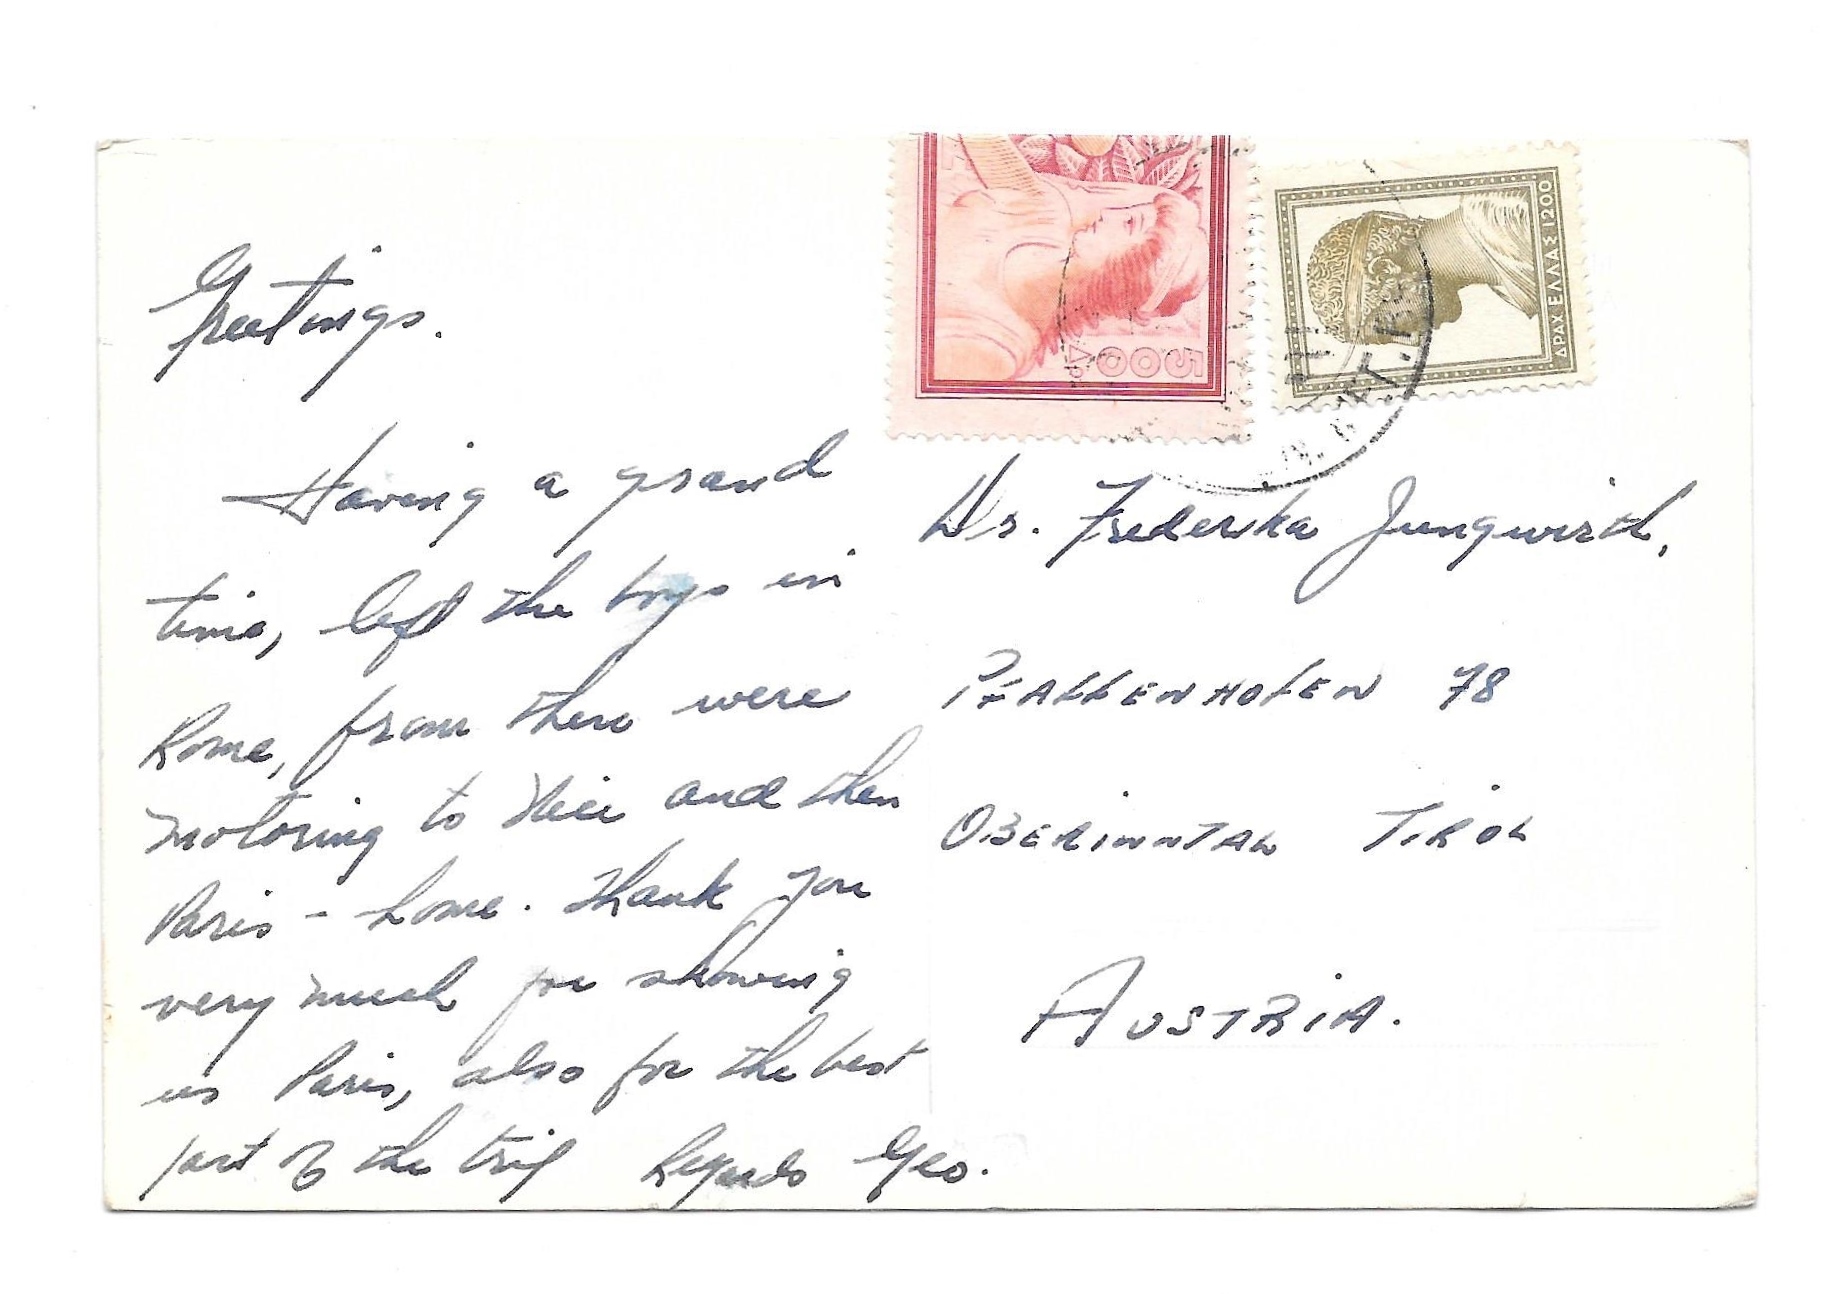 Greetings.
Having a grand
time, left the boys in
Rome, from there were
motoring to Nice and then
Paris - home. Thank you
very much for showing
us Paris, also for the best
part of the trip Regards Geo.
500 Δρ
ΔΡΑΧ ΕΛΛΑΣ 1200
Dr. Frederika Jungwirth,
PFAFFENHOFEN 78
OBERINNTAL TIROL
AUSTRIA.